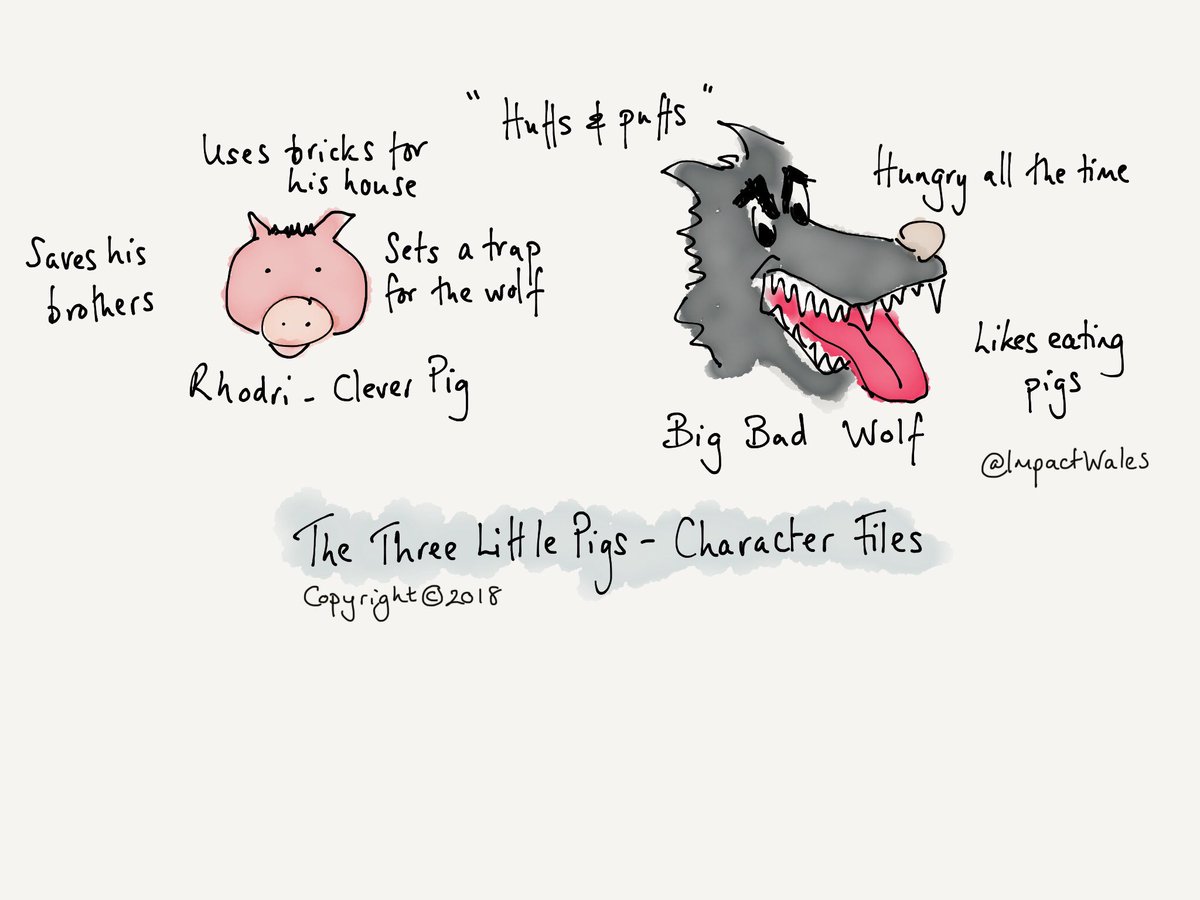 " Huffs & puffs "
Uses bricks for
his house
Saves his
brothers
Sets a trap
for the wolf
Rhodri - Clever Pig
Hungry all the time
Likes eating
pigs
Big Bad Wolf
@ImpactWales
The Three Little Pigs - Character Files
Copyright©2018